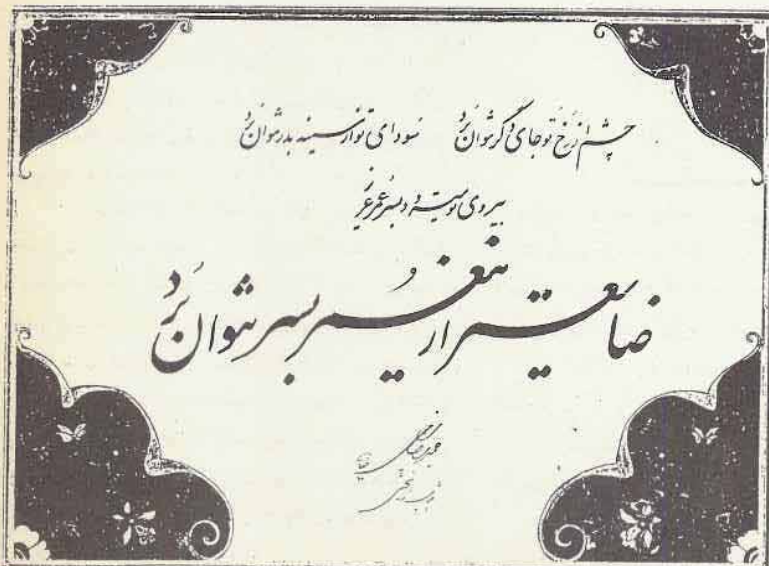 چشم از رخ تو جای دگر نتوان برد سودای تو از سینه بدر نتوان برد
بی روی تو میرود بسر عمر عزیز
ضایعتر ازین عمر بسر نتوان برد